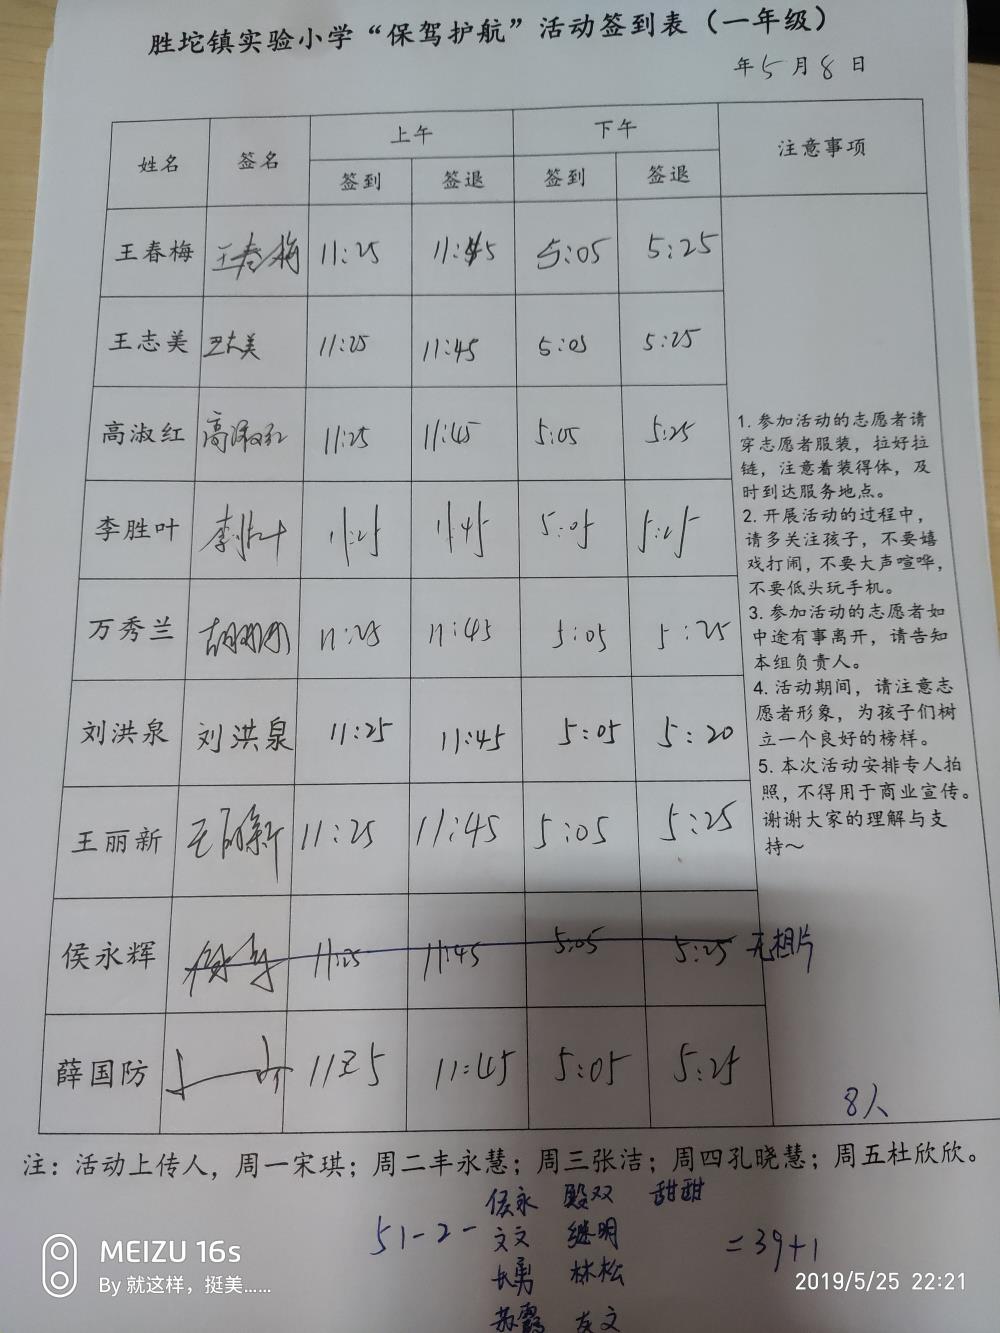 胜坨镇实验小学“保驾护航”活动签到表（一年级）
年5月8日
姓名 签名 上午 下午 注意事项
签到 签退 签到 签退
王春梅 王春梅 11:25 11:45 5:05 5:25
王志美 王志美 11:25 11:45 5:05 5:25
高淑红 高淑红 11:25 11:45 5:05 5:25
李胜叶 李胜叶 11:25 11:45 5:05 5:25
万秀兰 11:25 11:45 5:05 5:25
刘洪泉 刘洪泉 11:25 11:45 5:05 5:20
王丽新 王丽新 11:25 11:45 5:05 5:25
侯永辉 11:25 11:45 5:05 5:25 无相片
薛国防 11:25 11:45 5:05 5:25
1. 参加活动的志愿者请
穿志愿者服装，拉好拉
链，注意着装得体，及
时到达服务地点。
2. 开展活动的过程中，
请多关注孩子，不要嬉
戏打闹，不要大声喧哗，
不要低头玩手机。
3. 参加活动的志愿者如
中途有事离开，请告知
本组负责人。
4. 活动期间，请注意志
愿者形象，为孩子们树
立一个良好的榜样。
5. 本次活动安排专人拍
照，不得用于商业宣传。
谢谢大家的理解与支
持～
8人
注：活动上传人，周一宋琪；周二丰永慧；周三张洁；周四孔晓慧；周五杜欣欣。
侯永 殷双 甜甜
51-2- 文文 继明 =39+1
长勇 林松
苏霞 友文
MEIZU 16s
By 就这样，挺美……
2019/5/25 22:21